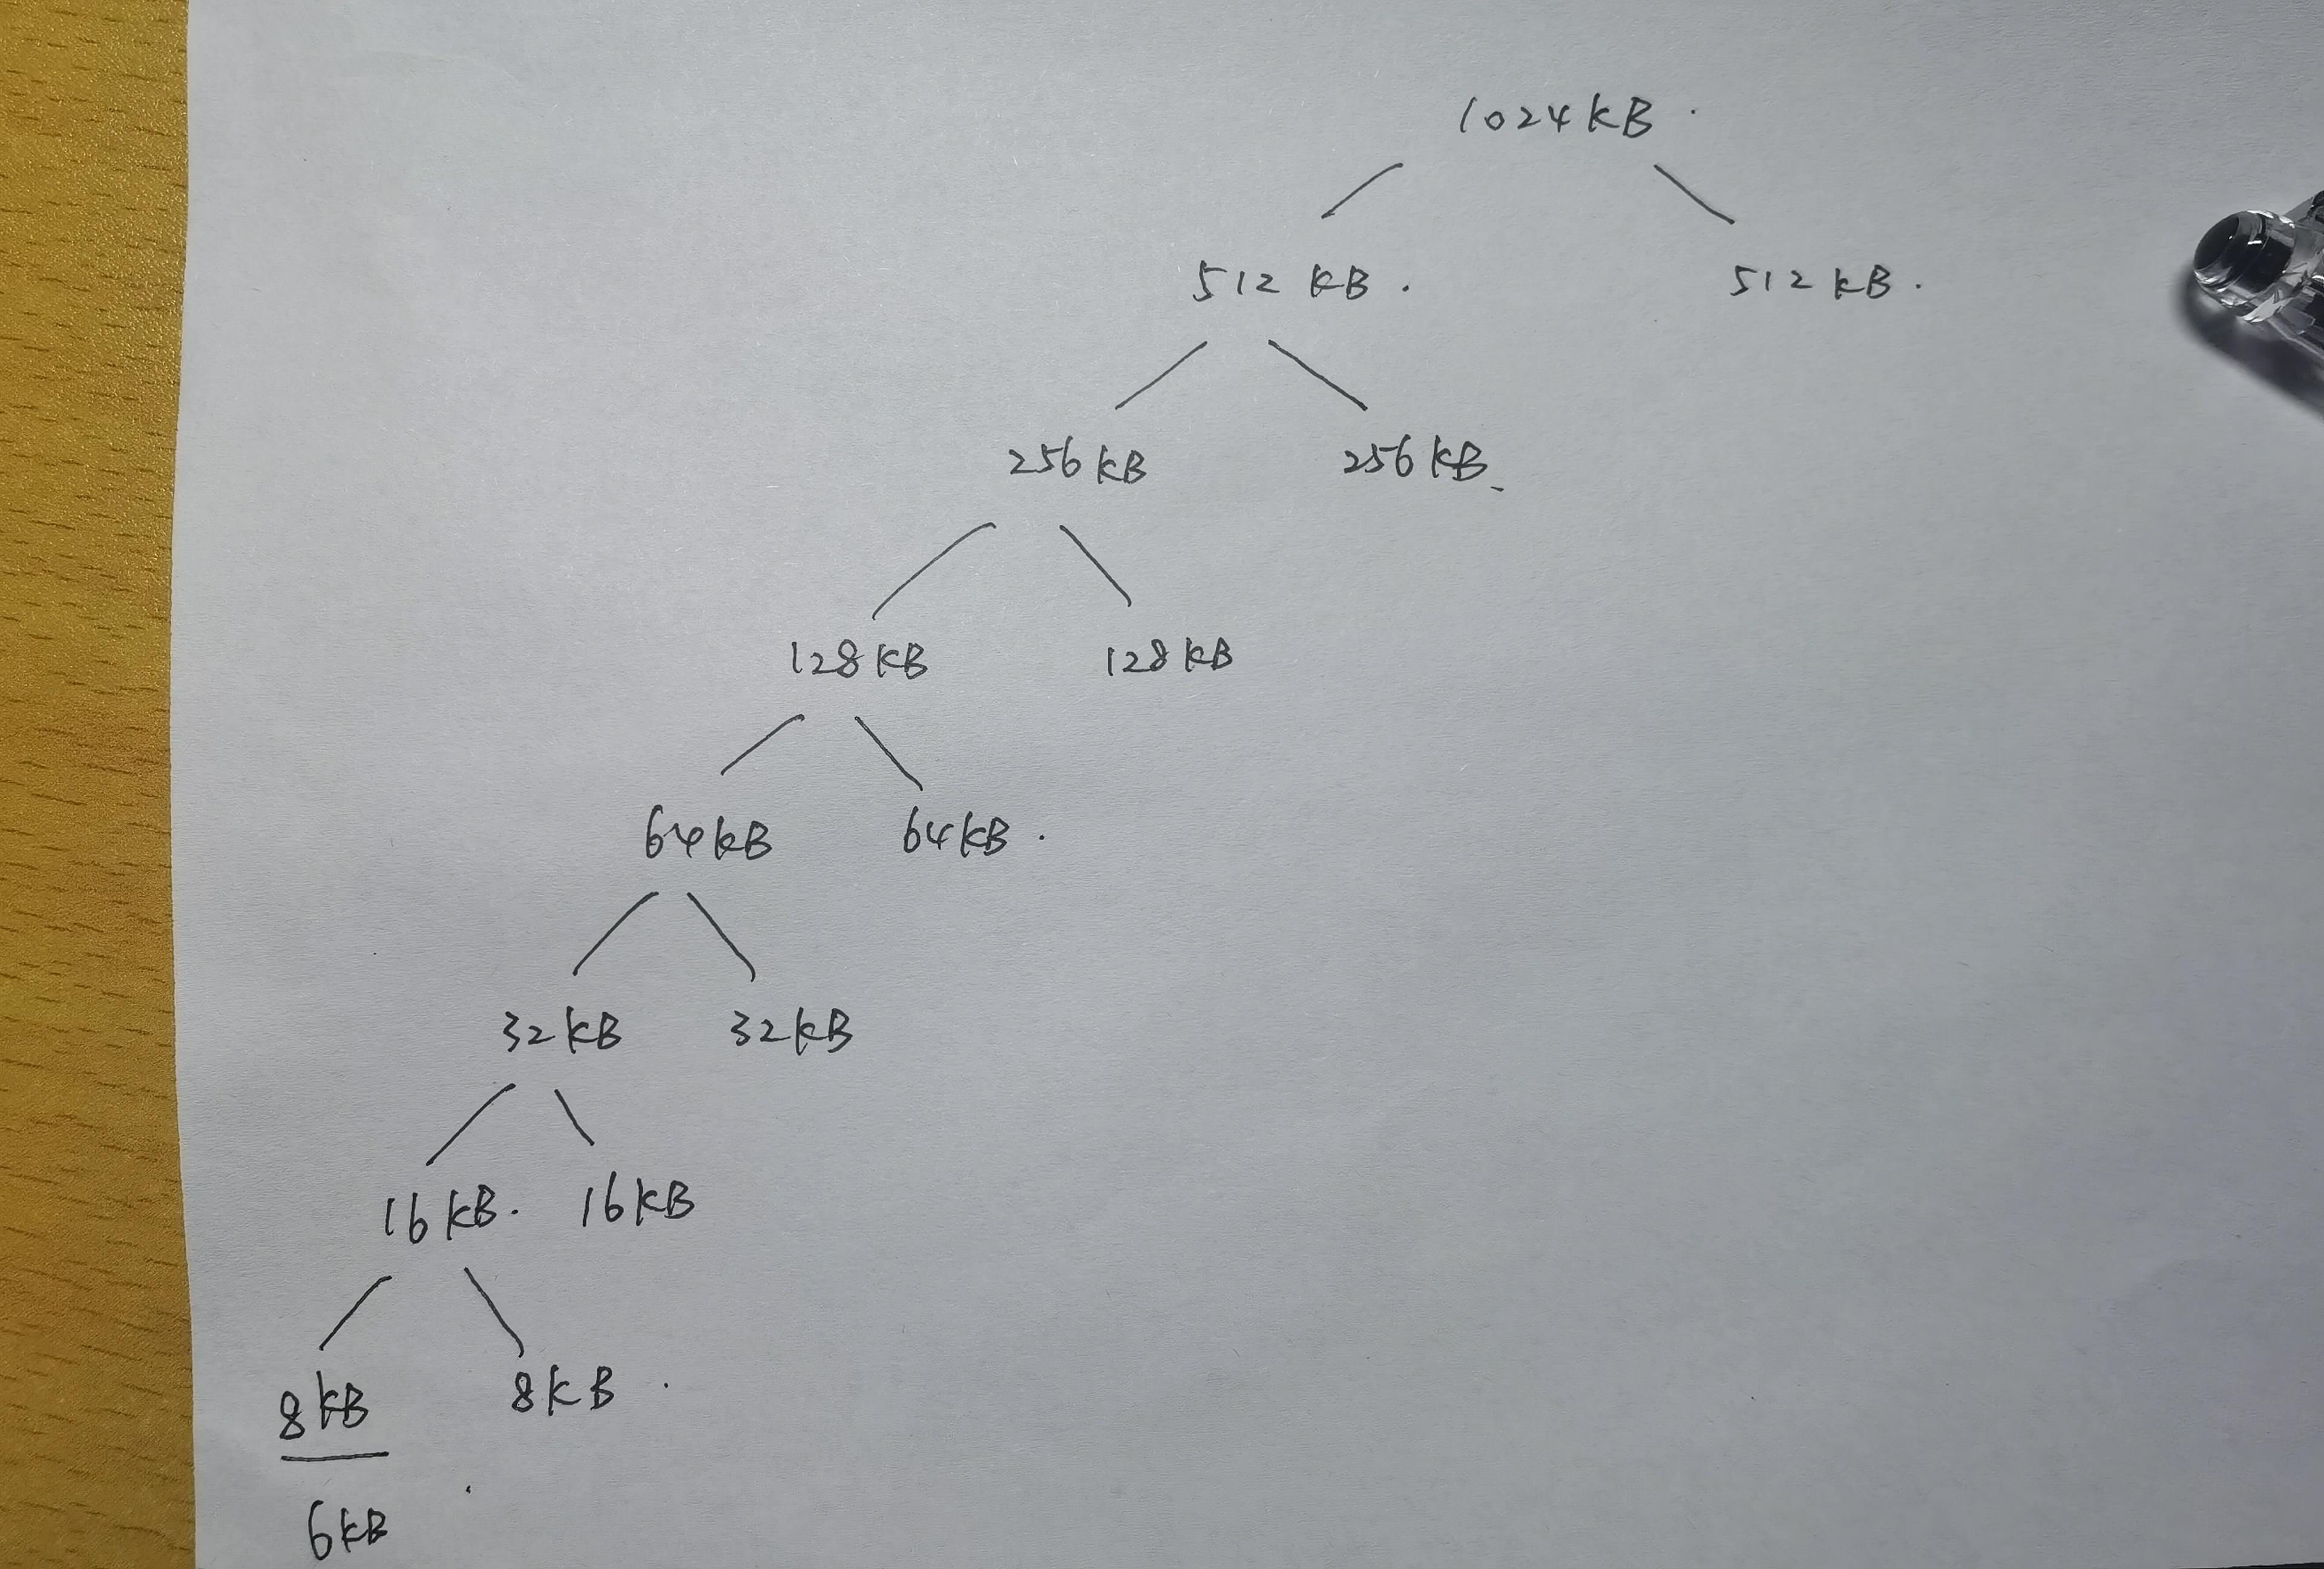 1024KB
512 KB 512 KB
256KB 256KB
128KB 128KB
64KB 64KB
32KB 32KB
16KB 16KB
8KB 8KB
6KB